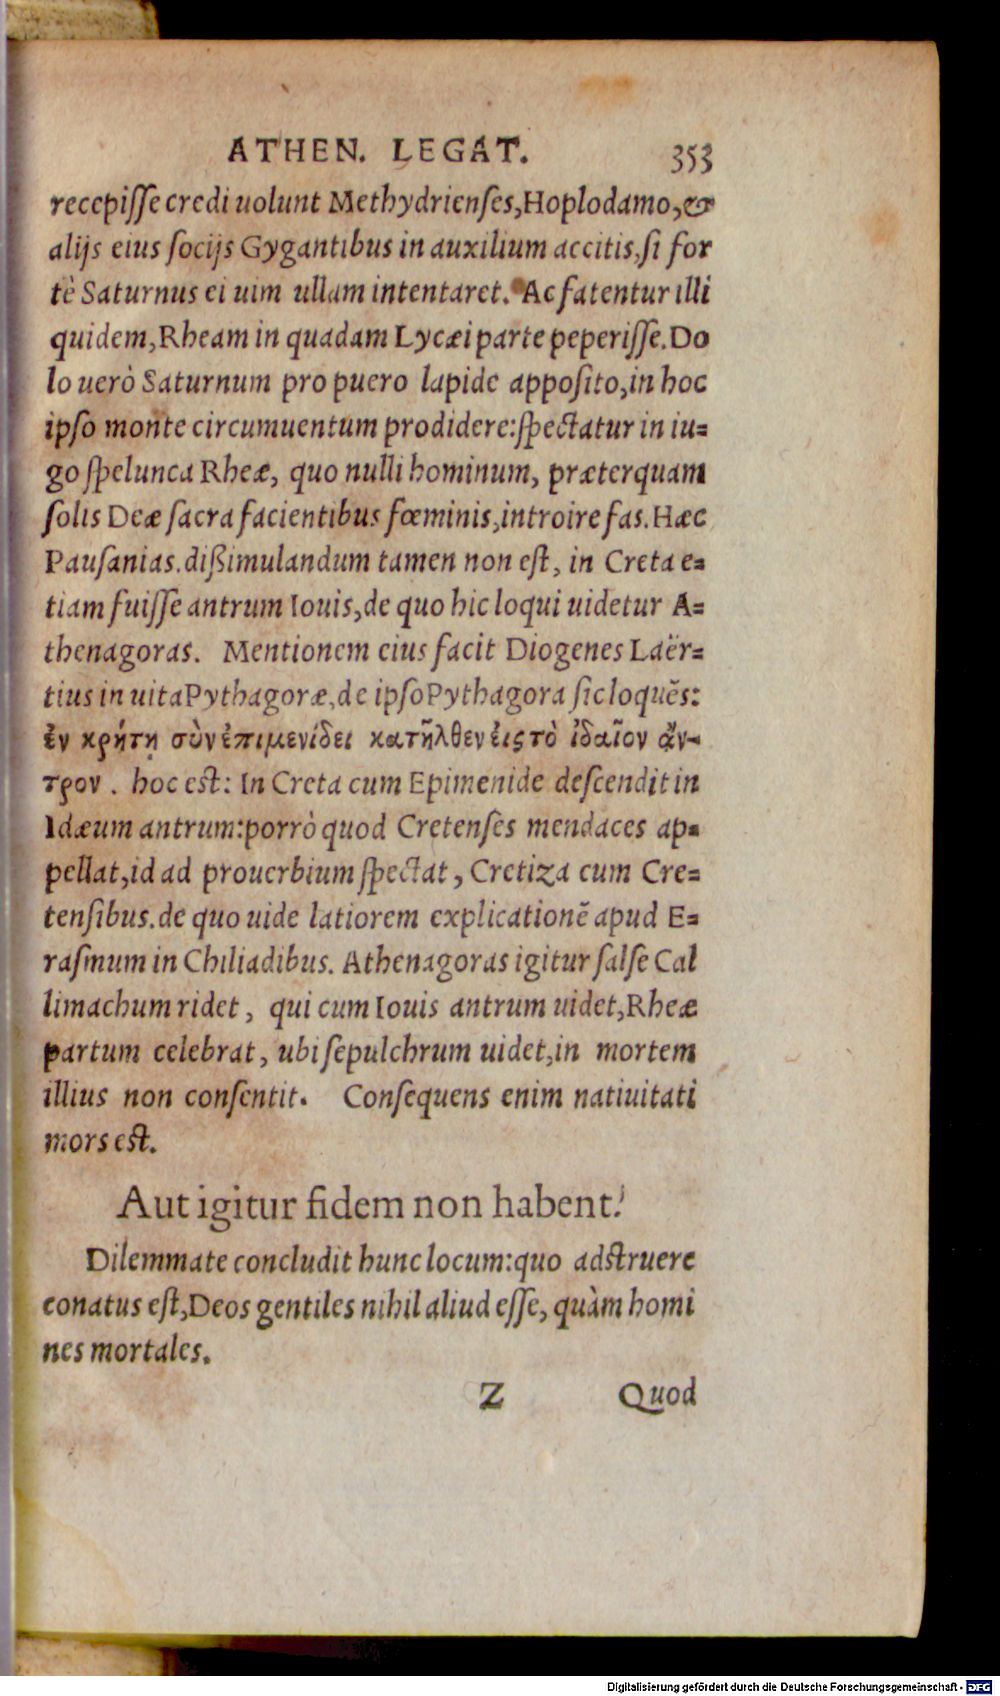 ATHEN. LEGAT. 353
recepiſſe credi uolunt Methydrienſes, Hoplodamo, &
alijs eius ſocijs Gygantibus in auxilium accitis, ſi for
tè Saturnus ei uim ullam intentaret. Ac fatentur illi
quidem, Rheam in quadam Lycæi parte peperiſſe. Do
lo uerò Saturnum pro puero lapide appoſito, in hoc
ipſo monte circumuentum prodidere: ſpectatur in iu=
go ſpelunca Rheæ, quo nulli hominum, præterquam
ſolis Deæ ſacra facientibus fœminis, introire fas. Hæc
Pauſanias. dißimulandum tamen non eſt, in Creta e=
tiam fuiſſe antrum Iouis, de quo hic loqui uidetur A=
thenagoras. Mentionem eius facit Diogenes Laër=
tius in uita Pythagoræ, de ipſo Pythagora ſic loquēs:
ἐν κρήτῃ σὺν ἐπιμενίδει κατῆλθεν εἰς τὸ ἰδαῖον ἄν-
τρον. hoc eſt: In Creta cum Epimenide deſcendit in
Idæum antrum: porrò quod Cretenſes mendaces ap=
pellat, id ad prouerbium ſpectat, Cretiza cum Cre=
tenſibus. de quo uide latiorem explicationē apud E=
raſmum in Chiliadibus. Athenagoras igitur ſalſe Cal
limachum ridet, qui cum Iouis antrum uidet, Rheæ
partum celebrat, ubi ſepulchrum uidet, in mortem
illius non conſentit. Conſequens enim natiuitati
mors eſt.
Aut igitur fidem non habent.
Dilemmate concludit hunc locum: quo adſtruere
conatus eſt, Deos gentiles nihil aliud eſſe, quàm homi
nes mortales.
Z Quod
Digitalisierung gefördert durch die Deutsche Forschungsgemeinschaft - DFG